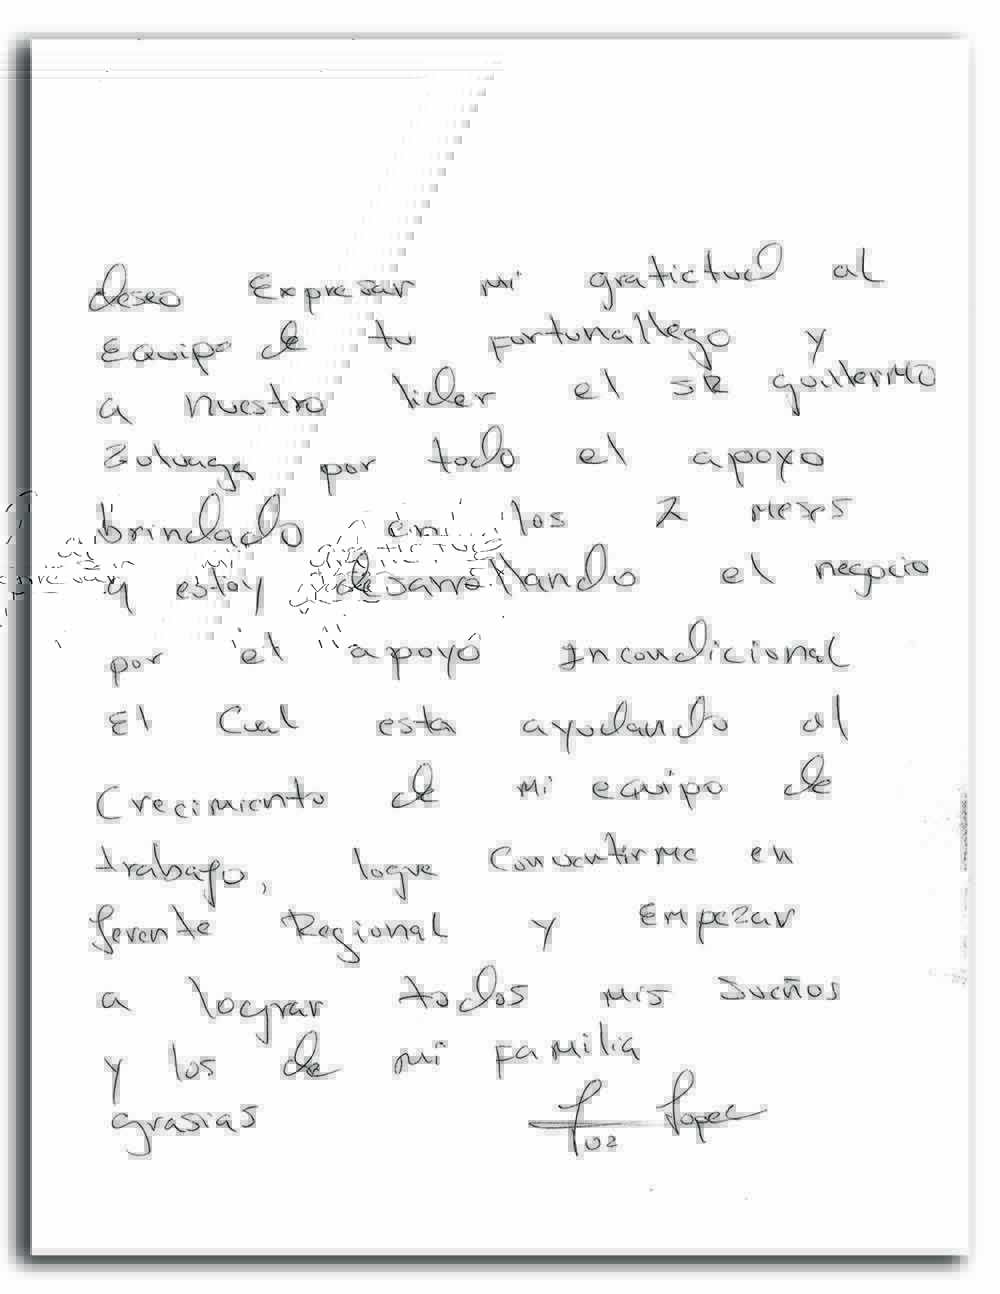 deseo Expresar mi gratictud al
Equipo de tu fortunallego y
a nuestro lider el SR guillermo
Zuluaga por todo el apoyo
brindado en los 2 meses
q estoy desarrollando el negocio
por el apoyo Incondicional
El Cual esta ayudando al
Crecimiento de mi equipo de
trabajo, logre Conventirme en
Gerente Regional y Empezar
a lograr todos mis Sueños
y los de mi familia
grasias Luz Lopez